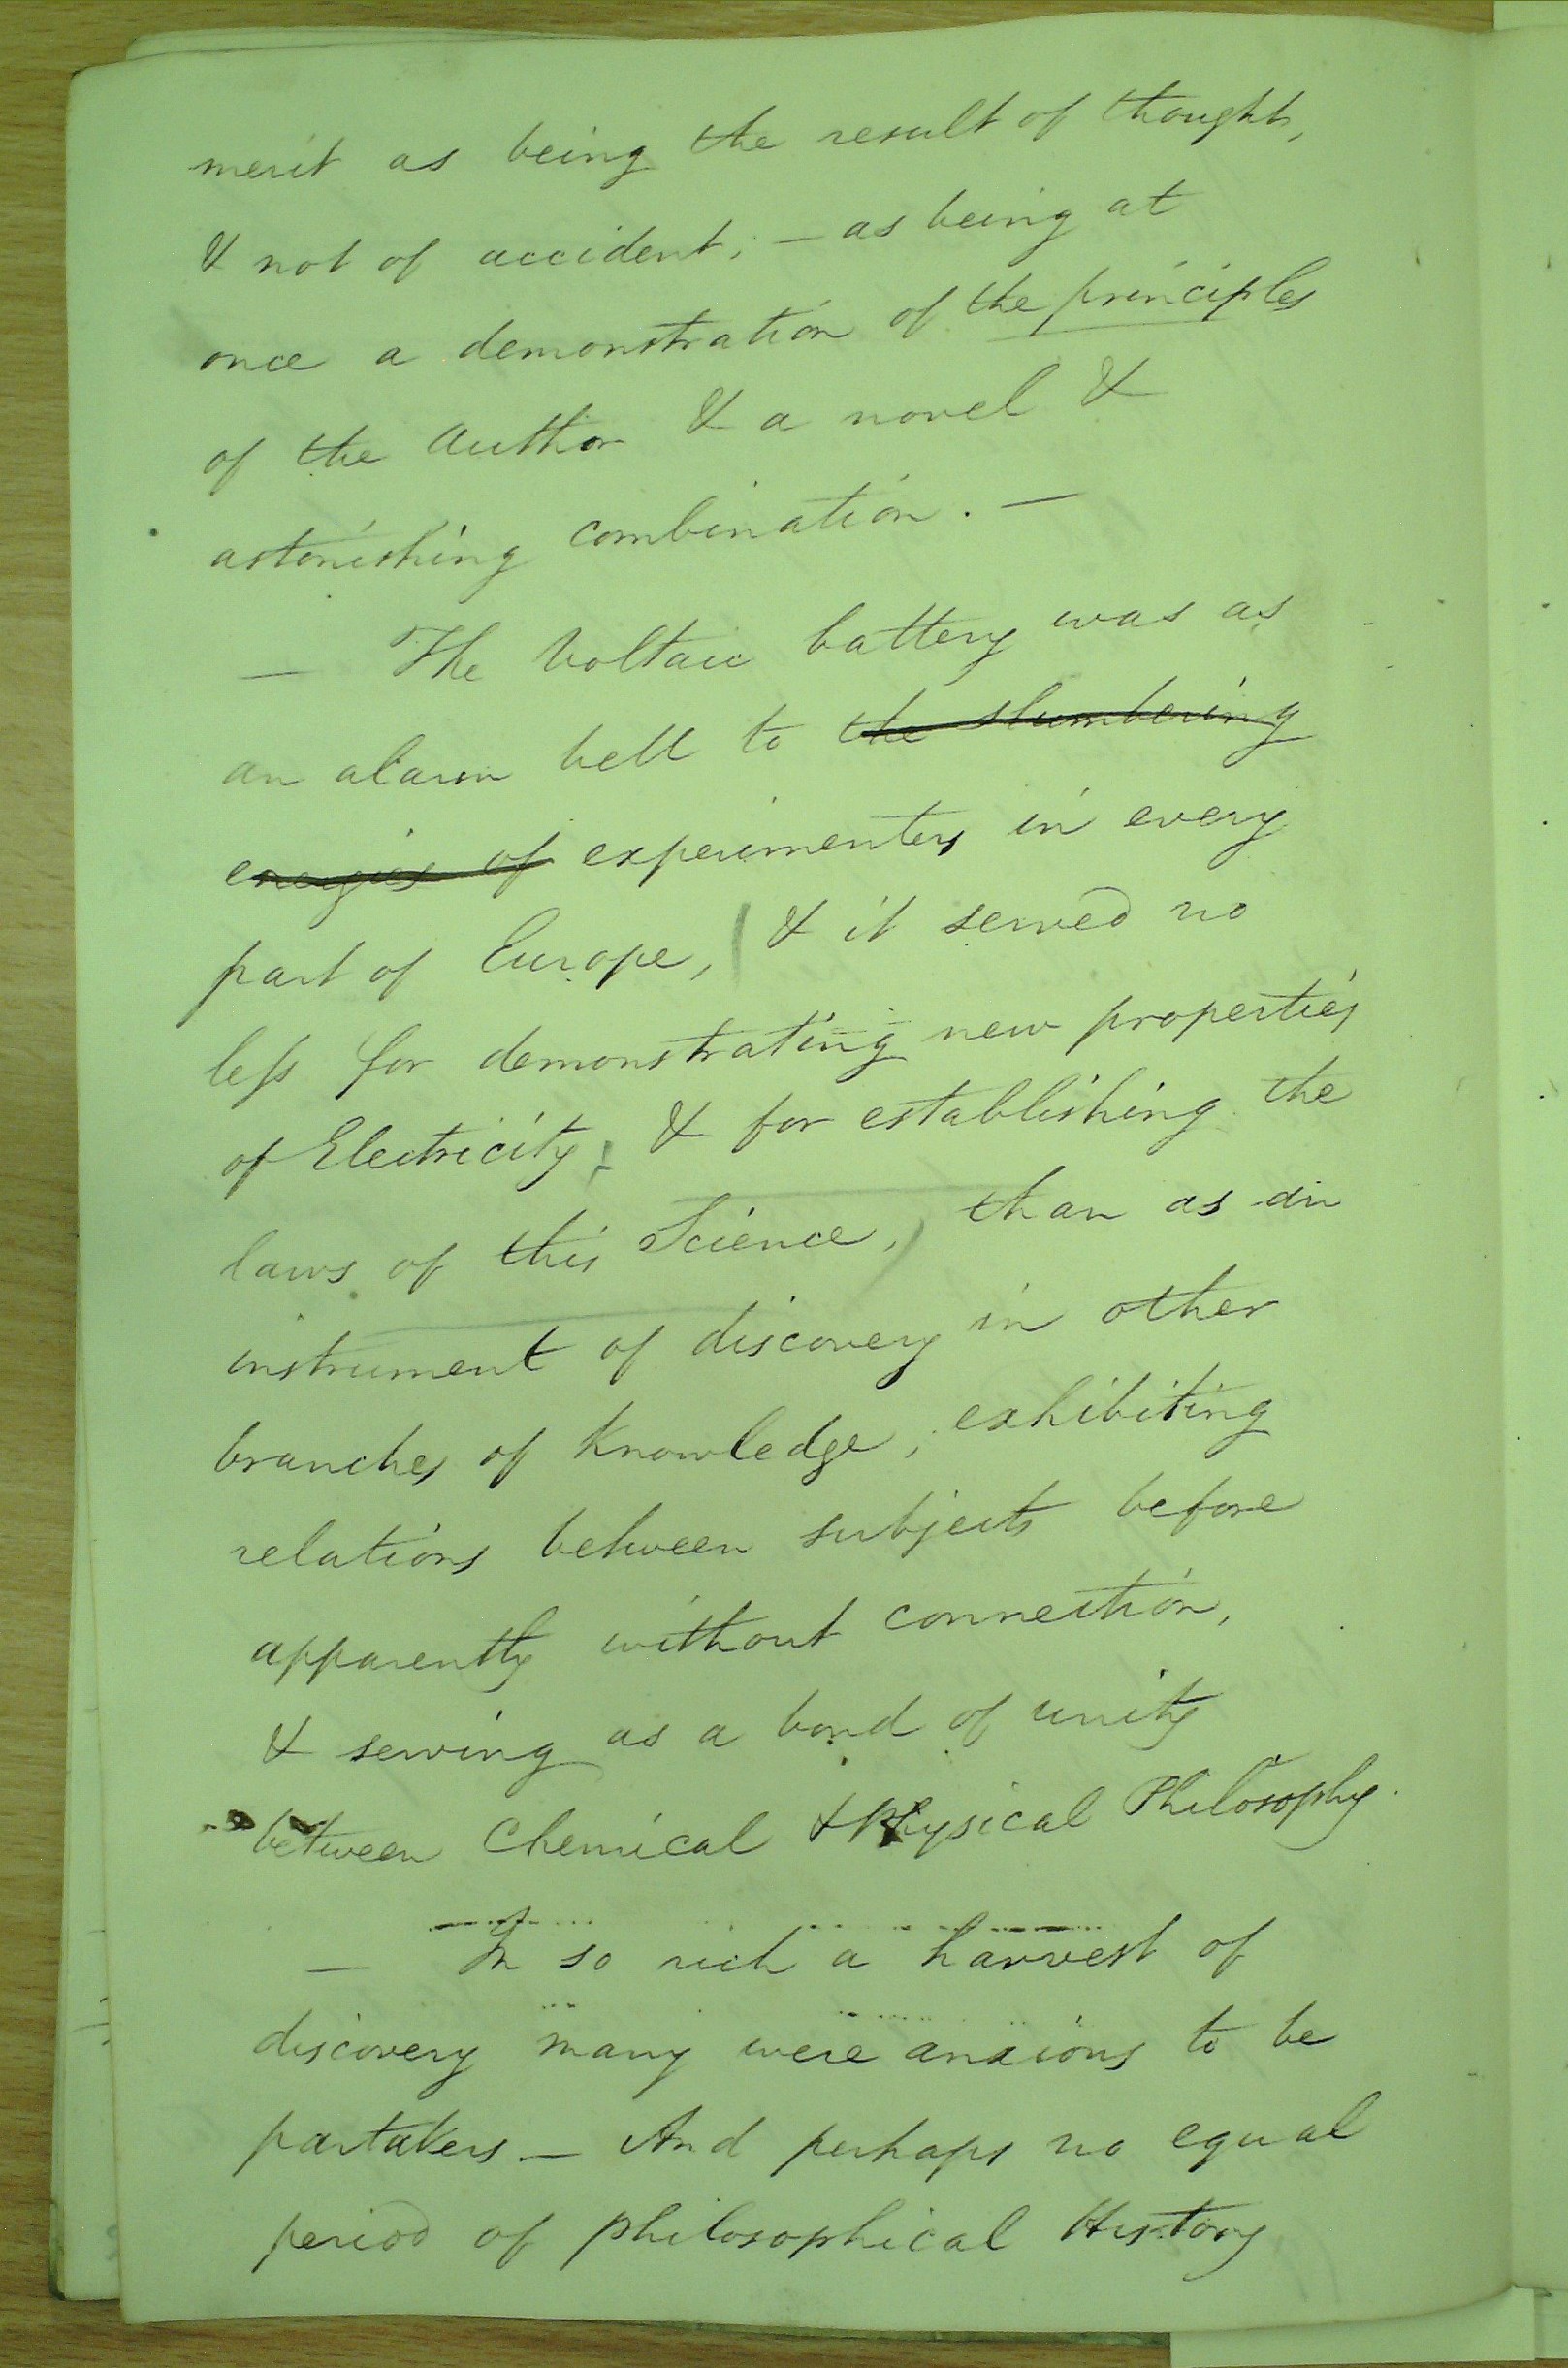 merit as being the result of thought,
& not of accident; – as being at
once a demonstration of the principles
of the Author & a novel &
astonishing combination. –
– The Voltaic battery was as
an alarm bell to the slumbering
energies of experimenters in every
part of Europe, & it served no
leſs for demonstrating new properties
of Electricity, & for establishing the
laws of this Science, than as an
instrument of discovery in other
branches of Knowledge; exhibiting
relations between subjects before
apparently without connection,
& serving as a bond of unity
between Chemical & Physical Philosophy.
– In so rich a harvest of
discovery many were anxious to be
partakers – And perhaps no equal
period of philosophical History